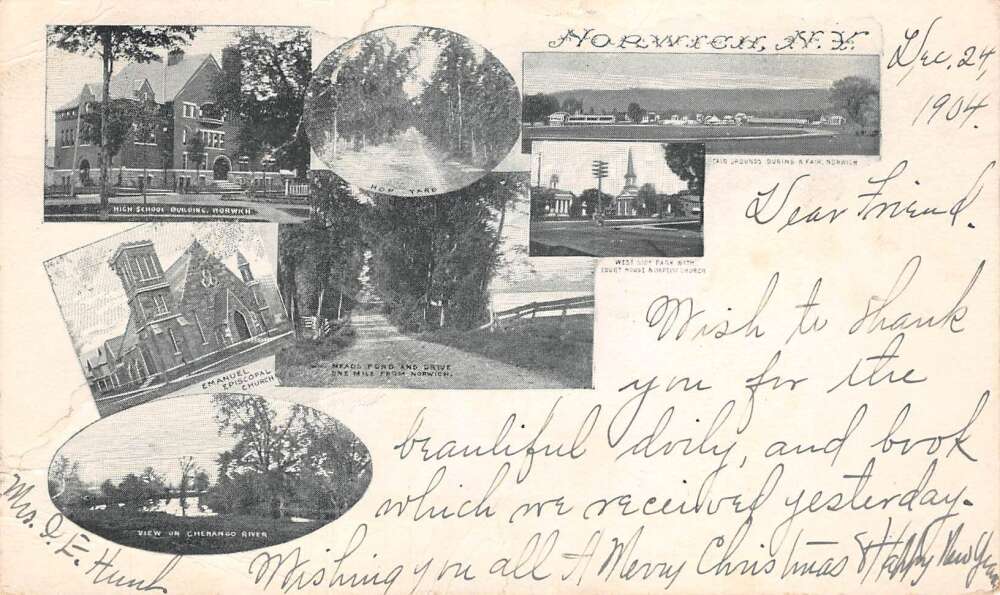 NORWICH, N.Y.
Dec, 24,
1904.
HIGH SCHOOL BUILDING, NORWICH
HOP YARD
FAIR GROUNDS DURING A FAIR, NORWICH
WEST SIDE PARK WITH
COURT HOUSE & BAPTIST CHURCH
EMANUEL
EPISCOPAL
CHURCH
MEADS POND AND DRIVE
ONE MILE FROM NORWICH.
VIEW ON CHENANGO RIVER
Dear Friend.
Wish to thank
you for the
beautiful doily, and book
which we received yesterday.
Wishing you all A Merry Christmas & Happy New Year
Mrs. I. E.